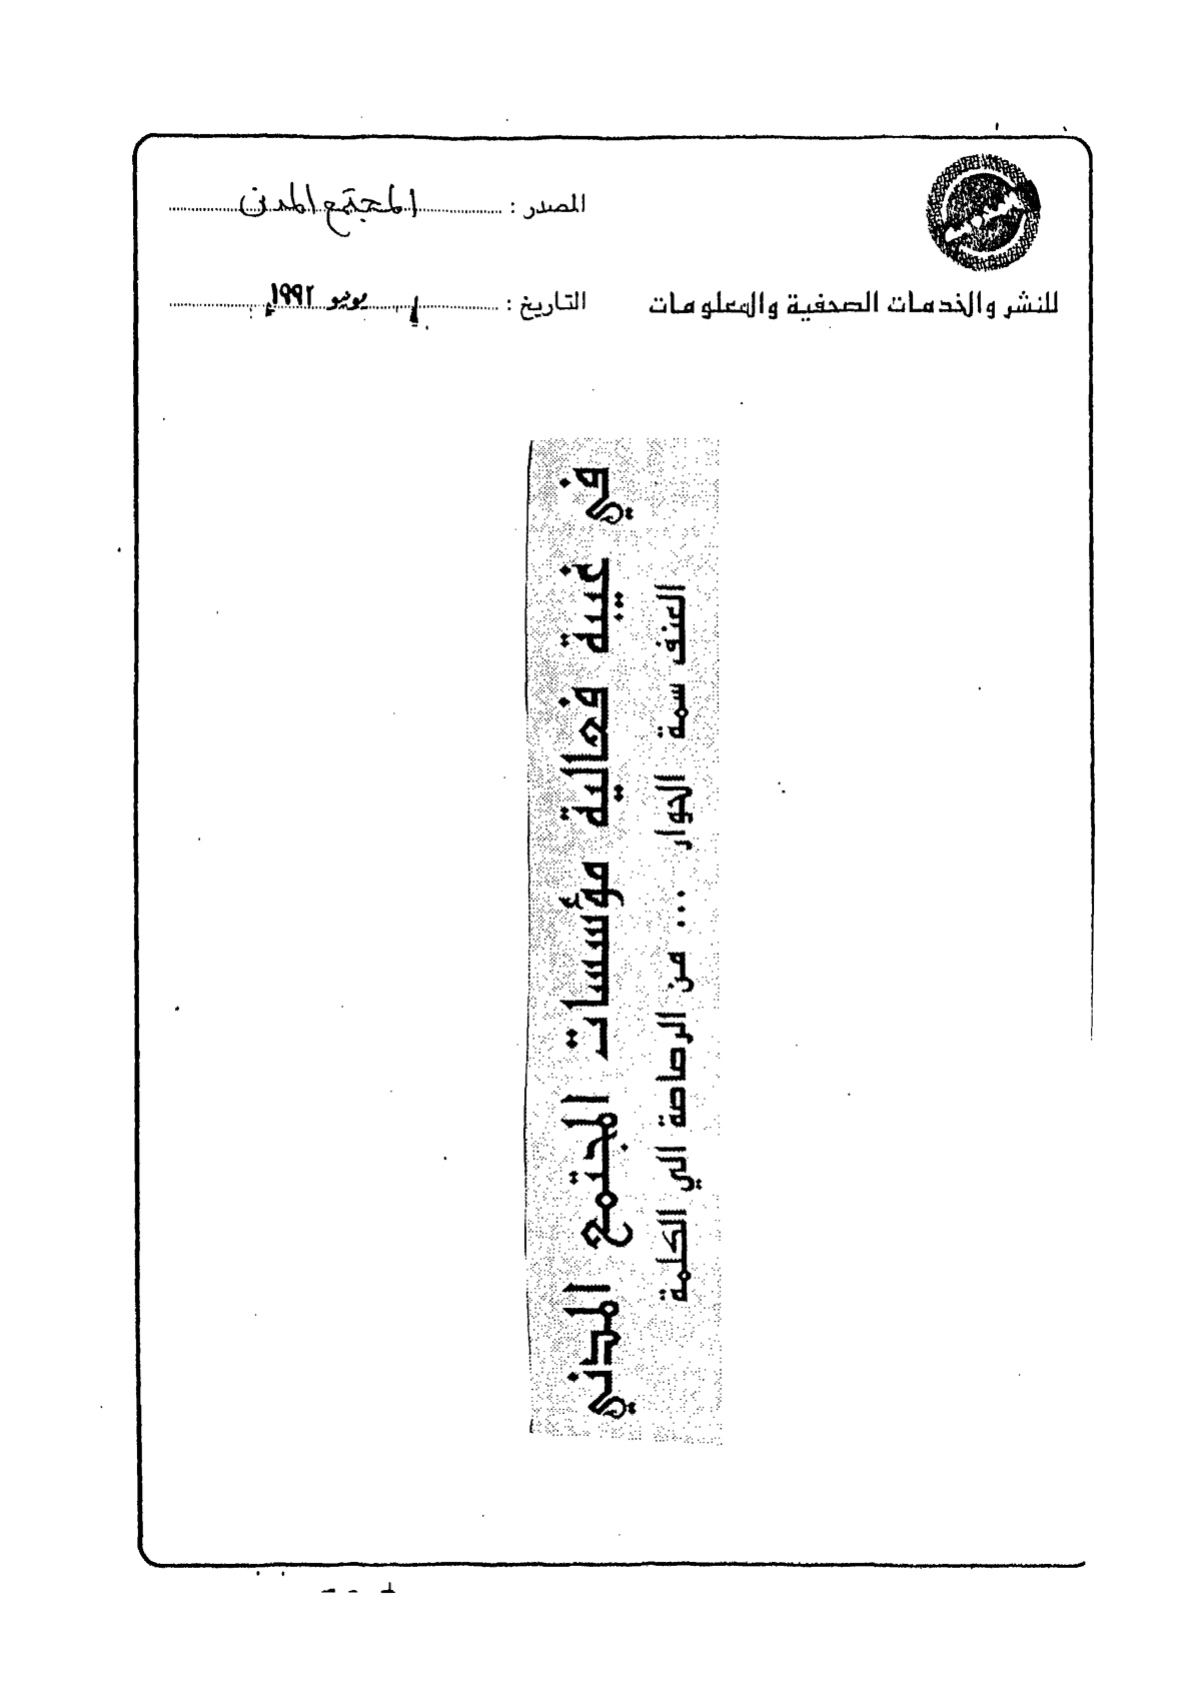 المصدر : المجتمع المدني
للنشر والخدمات الصحفية والمعلومات
التاريخ : يونيو ١٩٩٢
في غيبة فعالية مؤسسات المجتمع المدني
العنف سمة الحوار ... من الرصاصة الي الكلمة